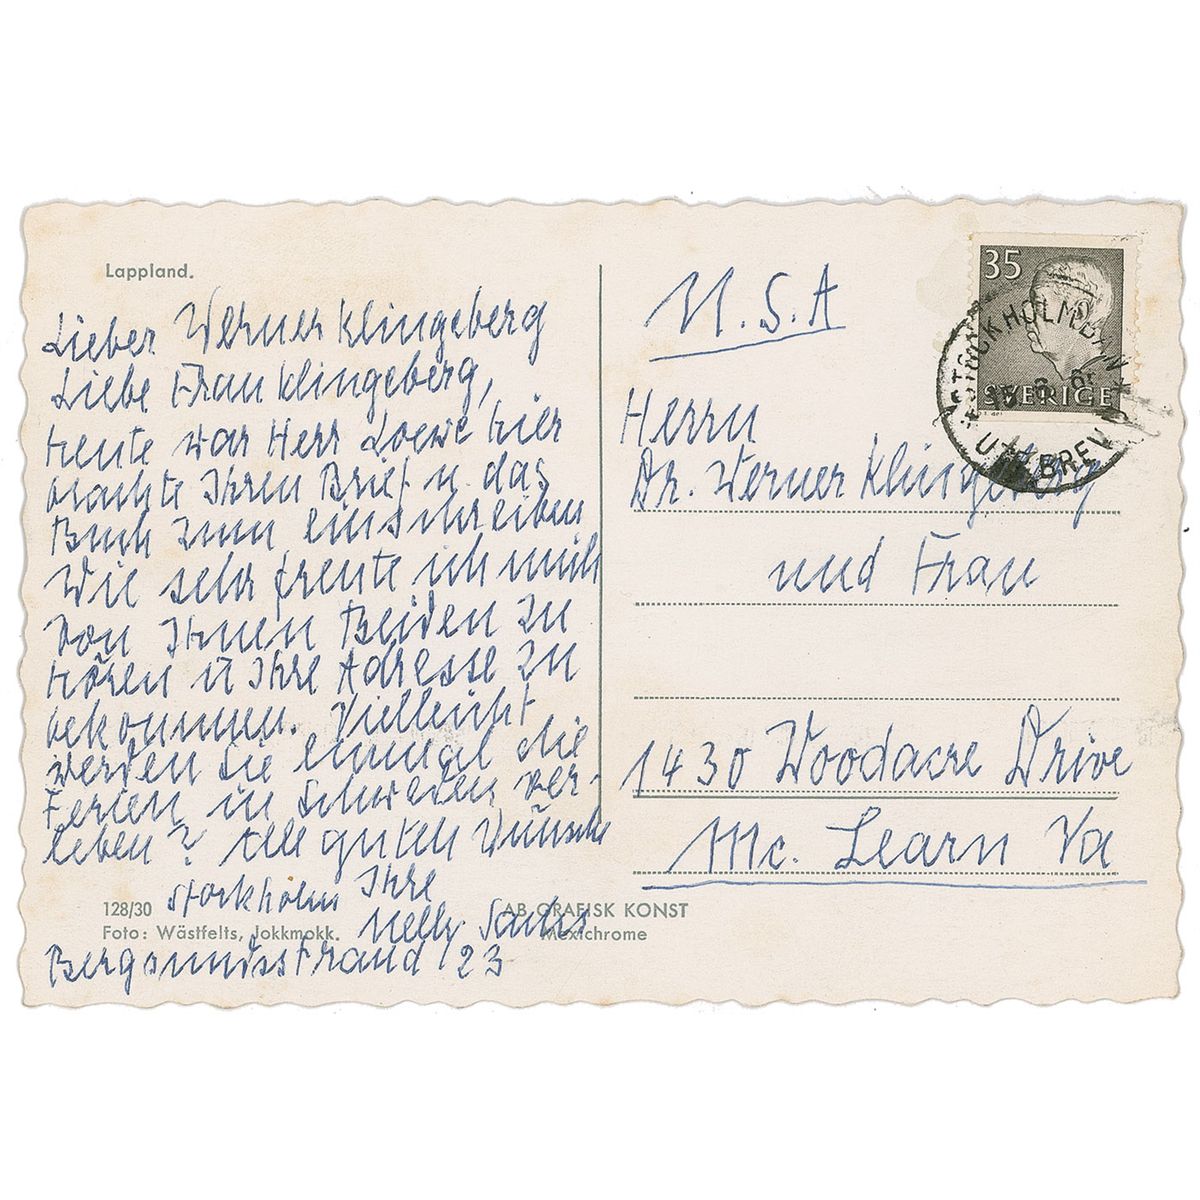 Lappland.
Lieber Werner Klingeberg
Liebe Frau Klingeberg,
heute war Herr Loewe hier
brachte Ihren Brief u. das
Buch zum einschreiben
Wie sehr freute ich mich
von Ihnen Beiden zu
hören u Ihre Adresse zu
bekommen. Vielleicht
werden Sie einmal die
Ferien in Schweden ver-
leben? Alle guten Wünsche
Stockholm Ihre
Nelly Sachs
Bergsundsstrand 23
128/30
Foto: Wästfelts, Jokkmokk.
AB GRAFISK KONST
Mexichrome
U.S.A
35
SVERIGE
STOCKHOLM BAN
UTR BREV
Herrn
Dr. Werner Klingeberg
und Frau
1430 Woodacre Drive
Mc. Learn Va